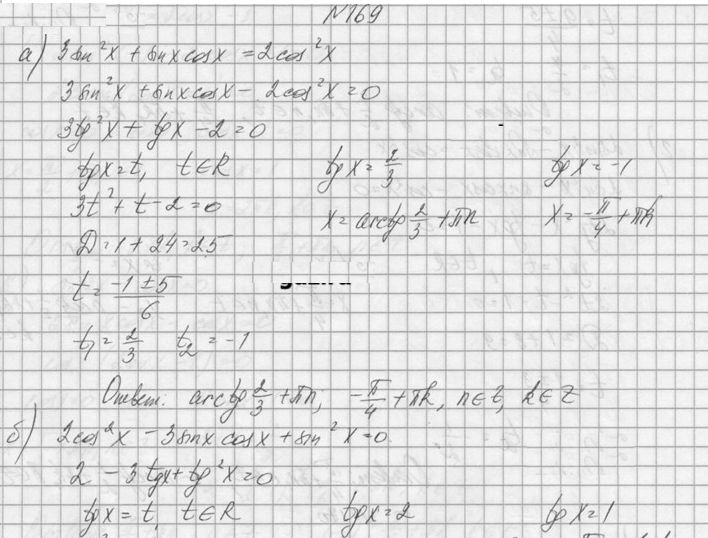 №169
а) 3sin²x + sinxcosx = 2cos²x
3sin²x + sinxcosx - 2cos²x = 0
3tg²x + tgx - 2 = 0
tgx = t, t∈R
3t² + t - 2 = 0
D = 1 + 24 = 25
t = (-1 ± 5)/6
t₁ = 2/3 t₂ = -1
tgx = 2/3
x = arctg 2/3 + πn
tgx = -1
x = -π/4 + πk
Ответ: arctg 2/3 + πn; -π/4 + πk, n∈Z, k∈Z
б) 2cos²x - 3sinxcosx + sin²x = 0
2 - 3tgx + tg²x = 0
tgx = t, t∈R tgx = 2 tgx = 1